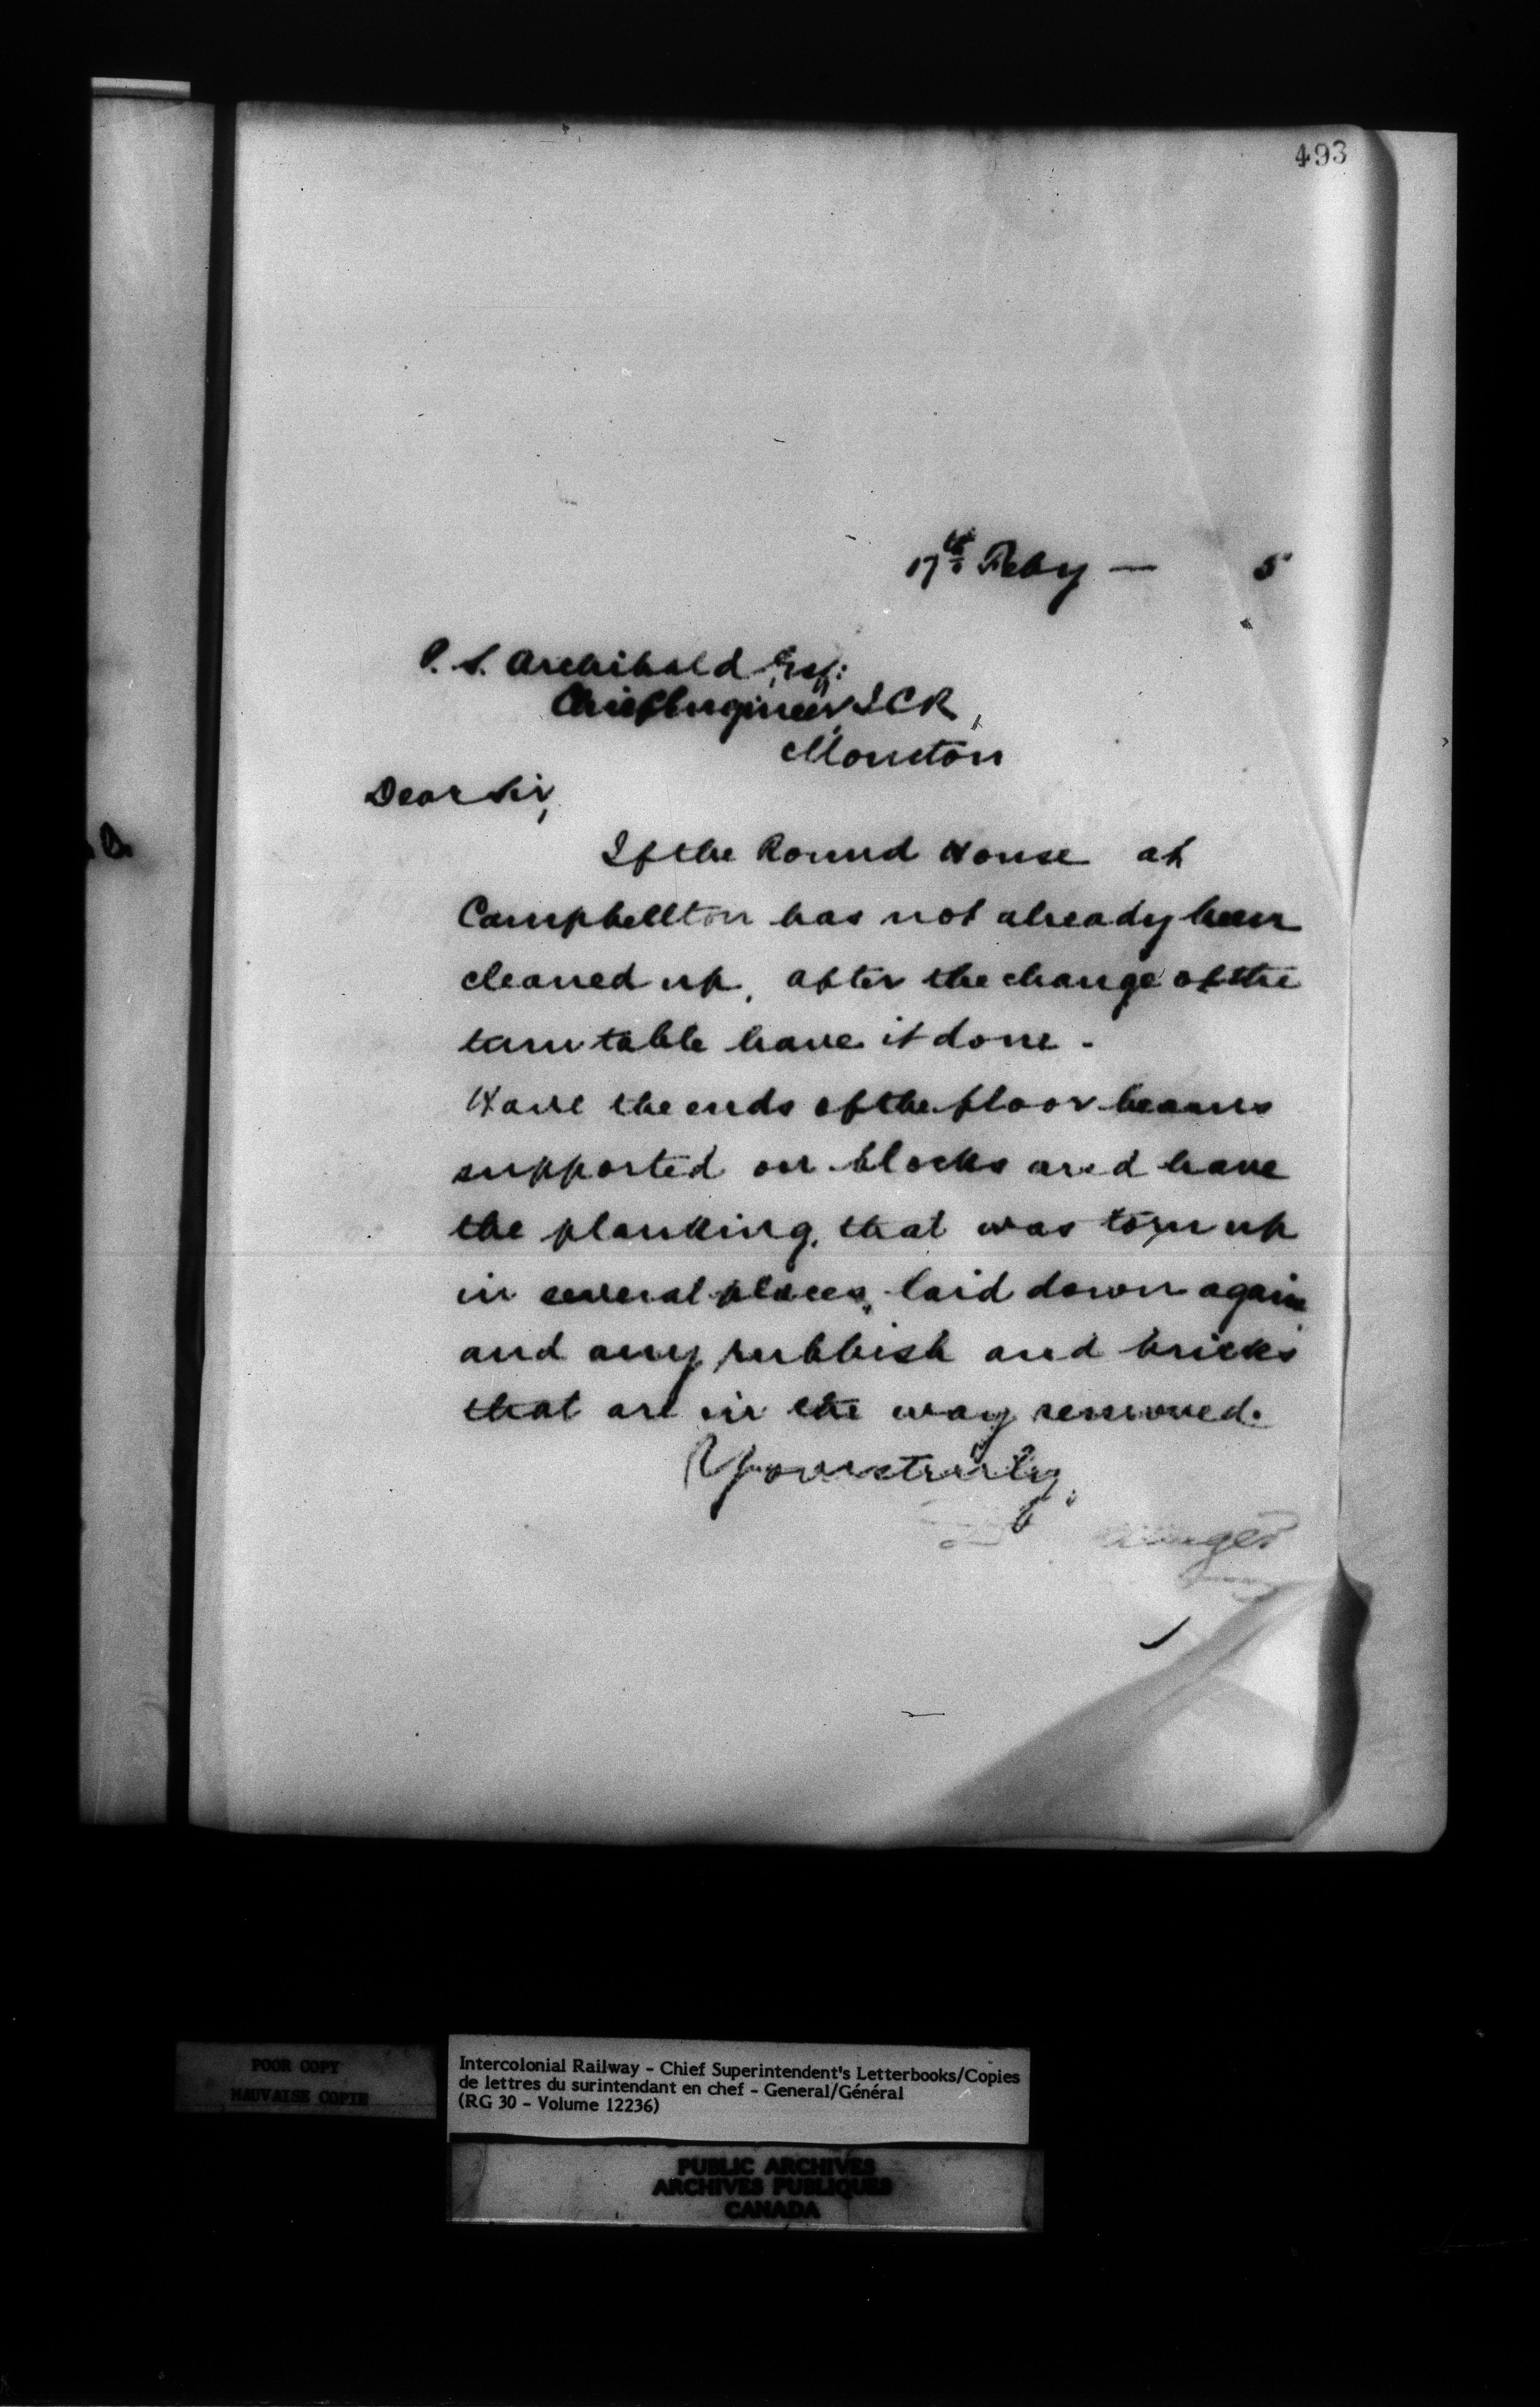 493
17th Feby — 5
P. S. Archibald Esq:
Chief Engineer I C R,
Moncton
Dear Sir,
If the Round House at
Campbellton has not already been
cleaned up, after the change of the
turntable have it done.
Have the ends of the floor beams
supported on blocks and have
the planking, that was torn up
in several places, laid down again
and any rubbish and bricks
that are in the way removed.
Yours truly,
POOR COPY
MAUVAISE COPIE
Intercolonial Railway - Chief Superintendent's Letterbooks/Copies
de lettres du surintendant en chef - General/Général
(RG 30 - Volume 12236)
PUBLIC ARCHIVES
ARCHIVES PUBLIQUES
CANADA